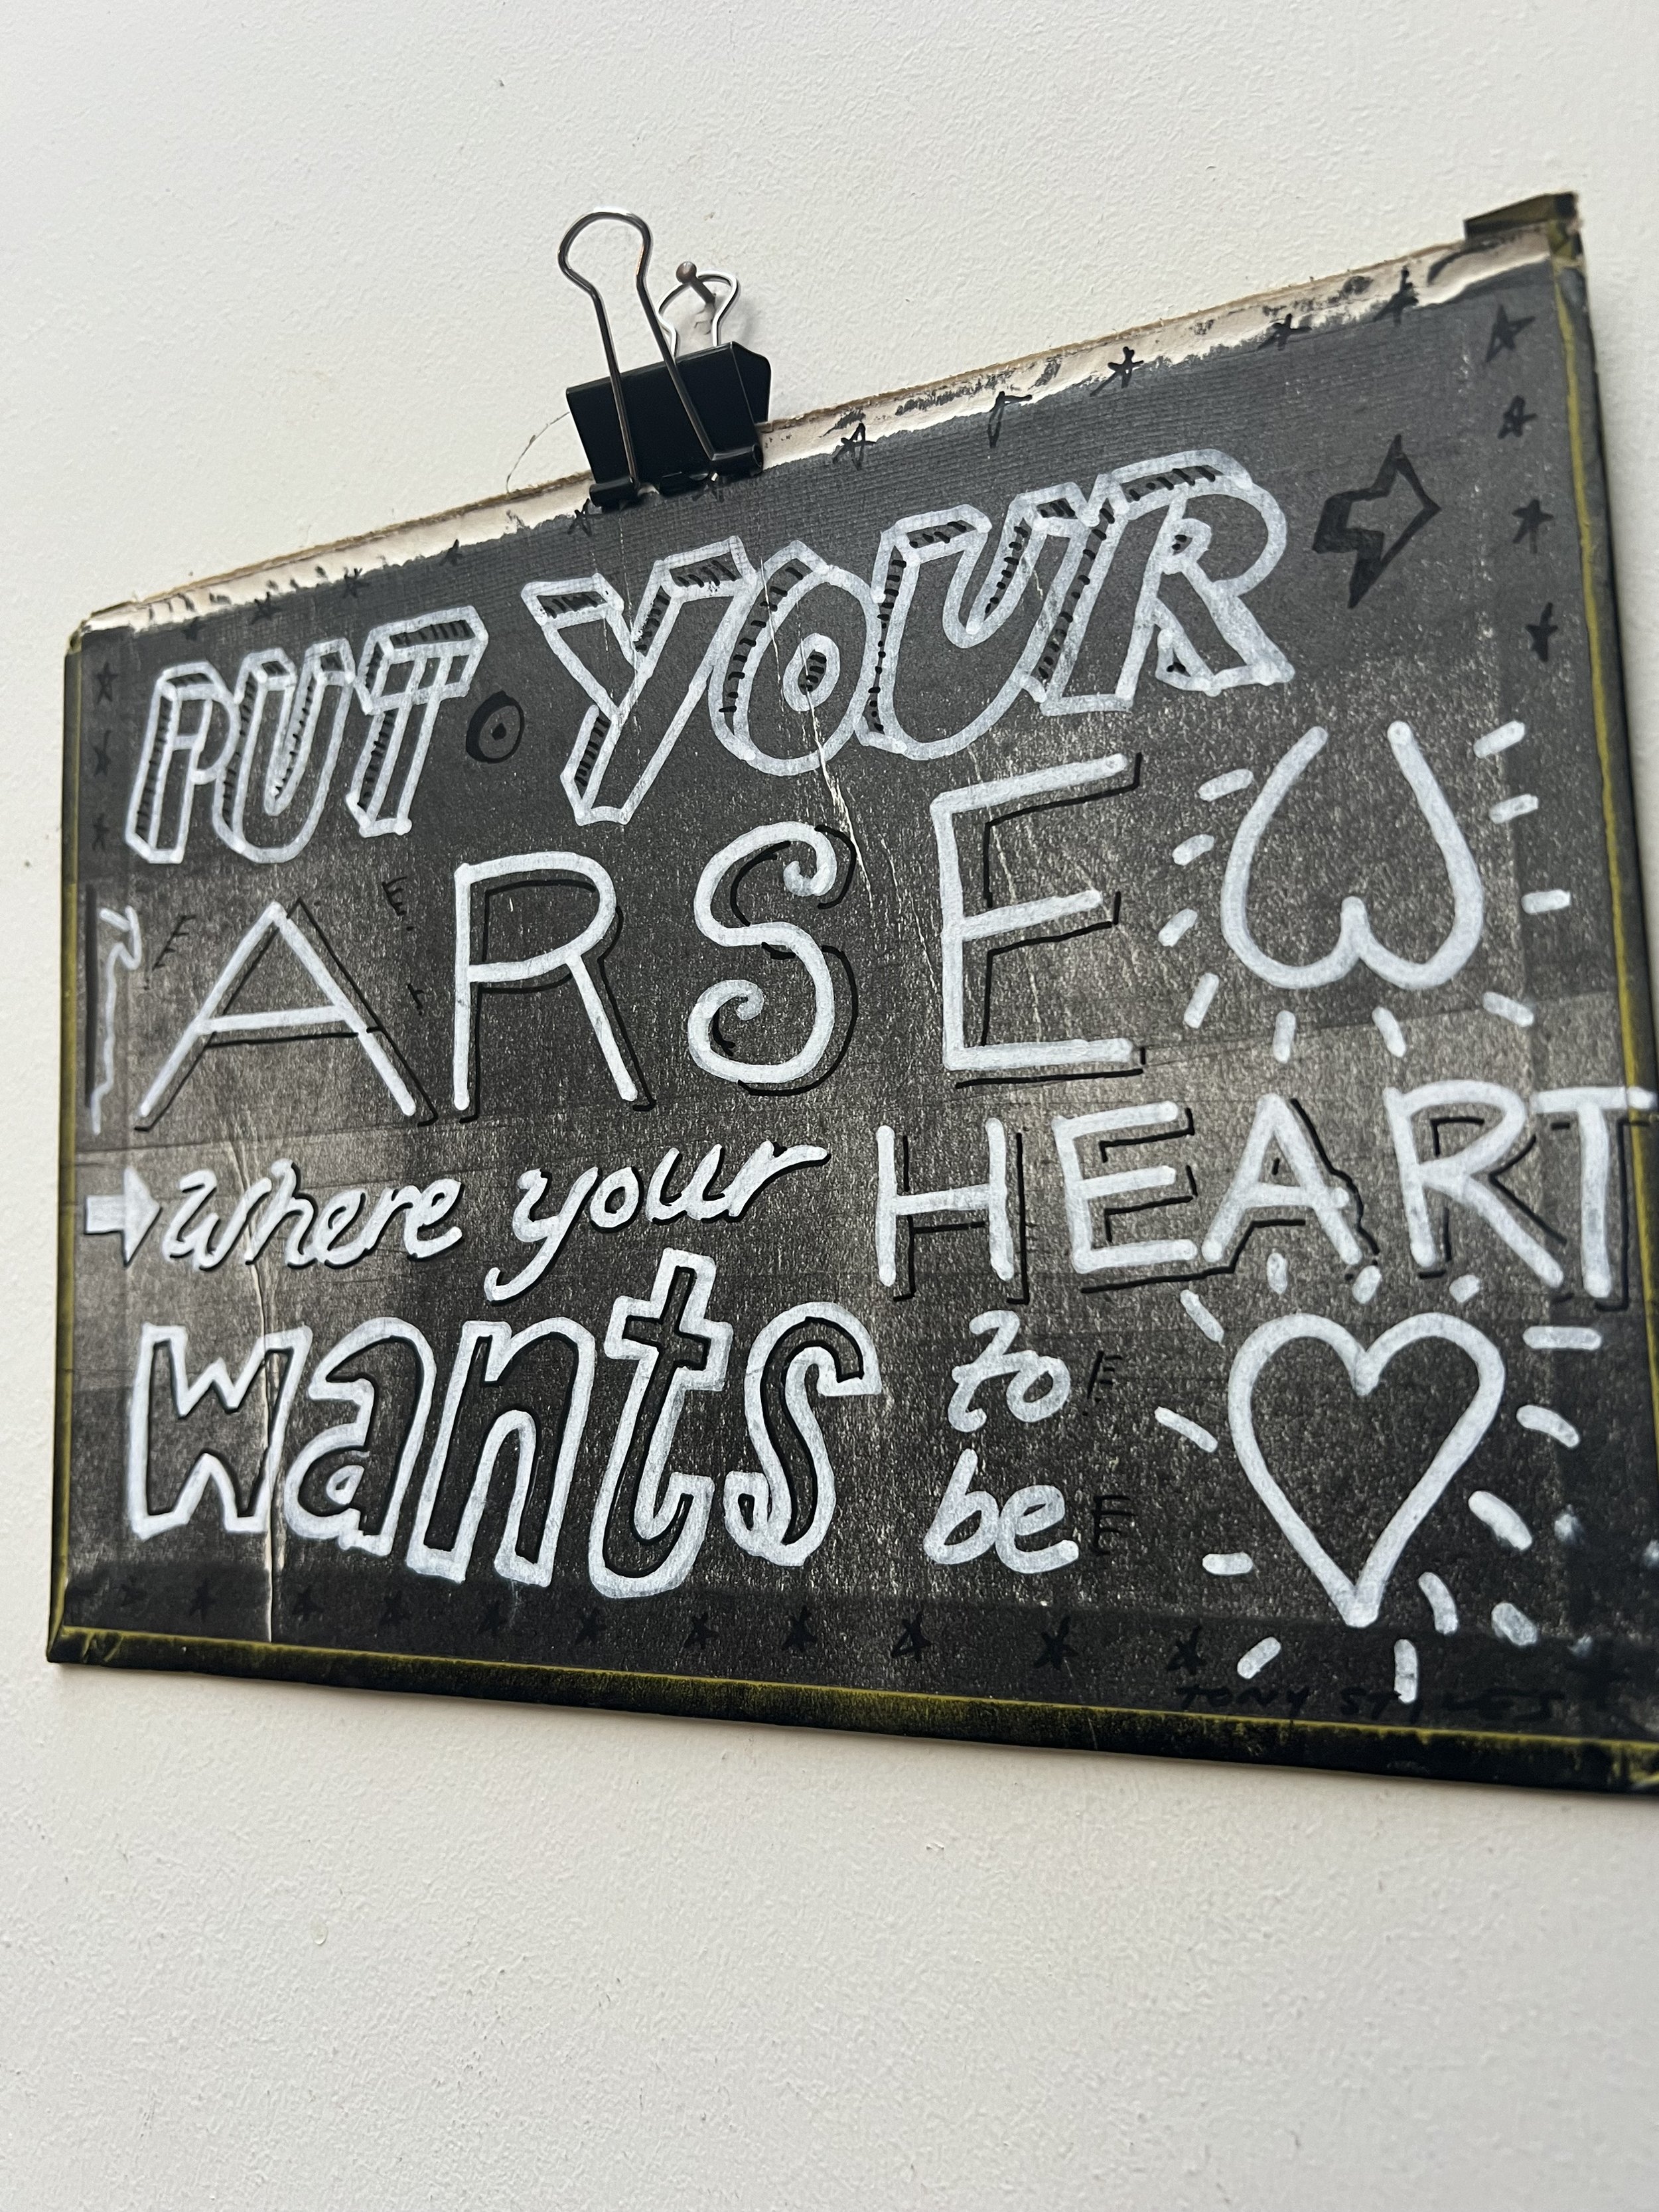 PUT YOUR
ARSE
where your HEART
wants to
be
TONY STYLES